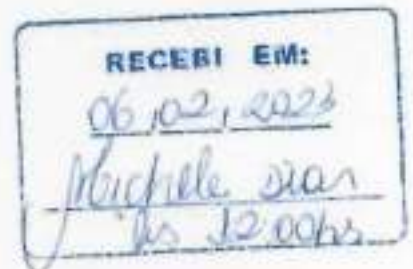 RECEBI EM:
06,02,2023
Michelle Dias
às 12:00hs